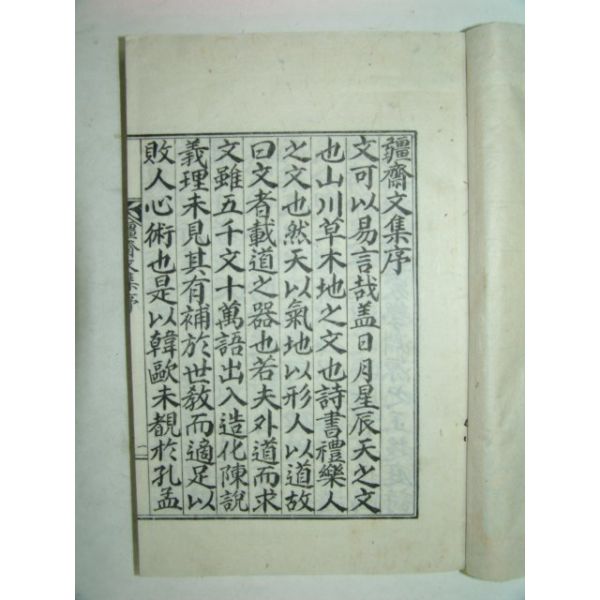 疆齋文集序
文可以易言哉盖日月星辰天之文
也山川草木地之文也詩書禮樂人
之文也然天以氣地以形人以道故
曰文者載道之器也若夫外道而求
文雖五千文十萬語出入造化陳說
義理未見其有補於世敎而適足以
敗人心術也是以韓歐未覩於孔孟
疆齋文集序
一